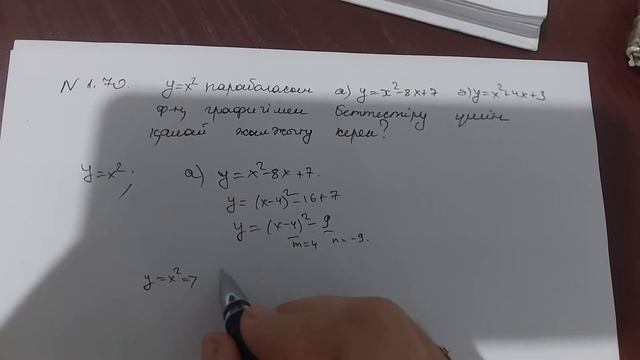 N 1.70. y=x² параболасын а) y=x²-8x+7 ә) y=x²-4x+3
ф-ң графигімен беттестіру үшін
қалай жылжыту керек?
y=x². а) y=x²-8x+7.
y=(x-4)²-16+7
y=(x-4)²-9
m=4 n=-9.
y=x²=>